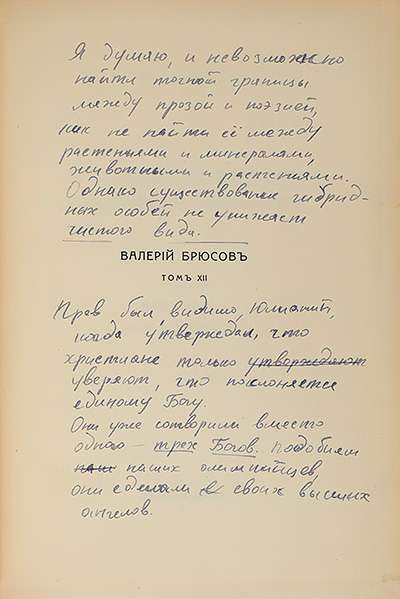 Я думаю, и невозможно
найти точной границы
между прозой и поэзией,
как не найти её между
растеньями и минералами,
животными и растениями.
Однако существование гибрид-
ных особей не унижает
чистого вида.
ВАЛЕРІЙ БРЮСОВЪ
ТОМЪ XII
Прав был, видимо, Юлиан,
когда утверждал, что
христиане только утверждают
уверяют, что поклоняются
единому Богу.
Они уже сотворили вместо
одного – трех Богов. Подобием
наш наших олимпийцев,
они сделали своих высших
ангелов.